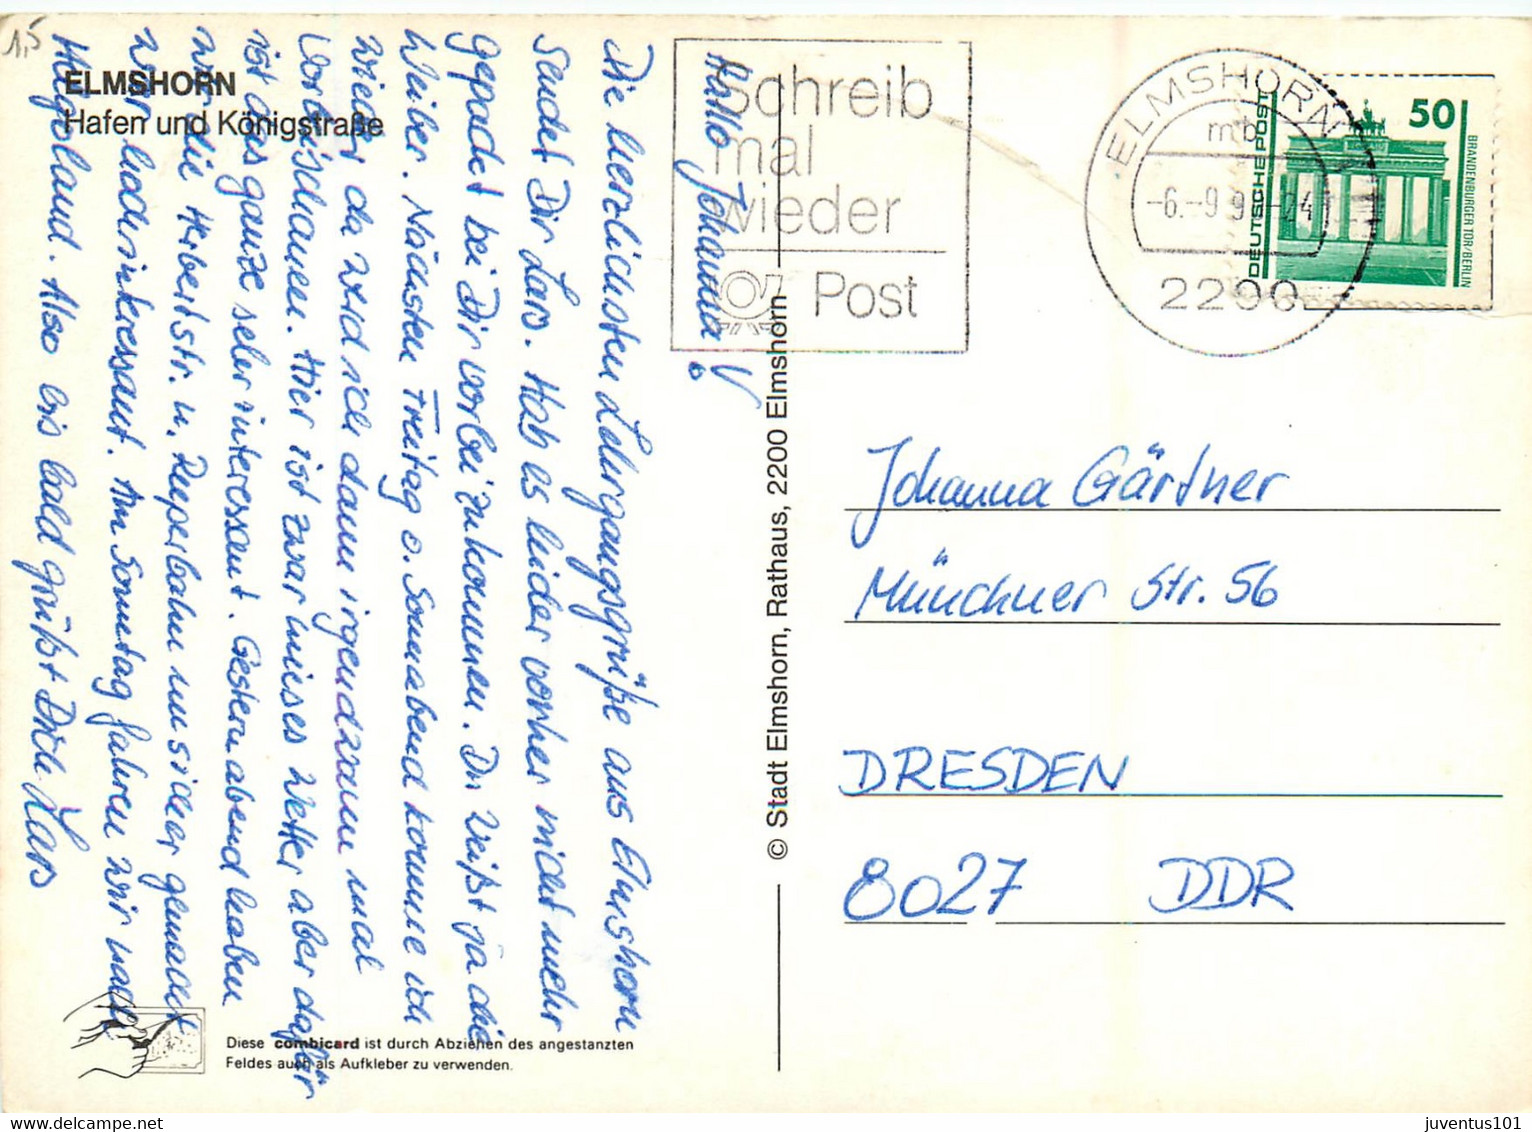 1,5
ELMSHORN
Hafen und Königstraße
Hallo Johanna!
Die herzlichsten Lehrgangsgrüße aus Elmshorn
Sendet Dir Lars. Hab es leider vorher nicht mehr
gepackt bei Dir vorbei zu kommen. Du weißt ja die
Weiber. Nächsten Freitag o. Sonnabend komme ich
wieder da werd ich dann irgendwann mal
Vorbeischauen. Hier ist zwar mieses Wetter aber dafür
ist das ganze sehr interessant. Gestern abend haben
wir die Herbertstr. u. Reeperbahn unsicher gemacht
war hochinteressant. Am Sonntag fahren wir nach
Helgoland. Also bis bald grüßt Dich Lars
Diese combicard ist durch Abziehen des angestanzten
Feldes auch als Aufkleber zu verwenden.
© Stadt Elmshorn, Rathaus, 2200 Elmshorn
Schreib
mal
wieder
Post
ELMSHORN 1
mb
-6.-9.9
2200
DEUTSCHE POST
50
BRANDENBURGER TOR/BERLIN
Johanna Gärtner
Münchner Str. 56
DRESDEN
8027 DDR
juventus101